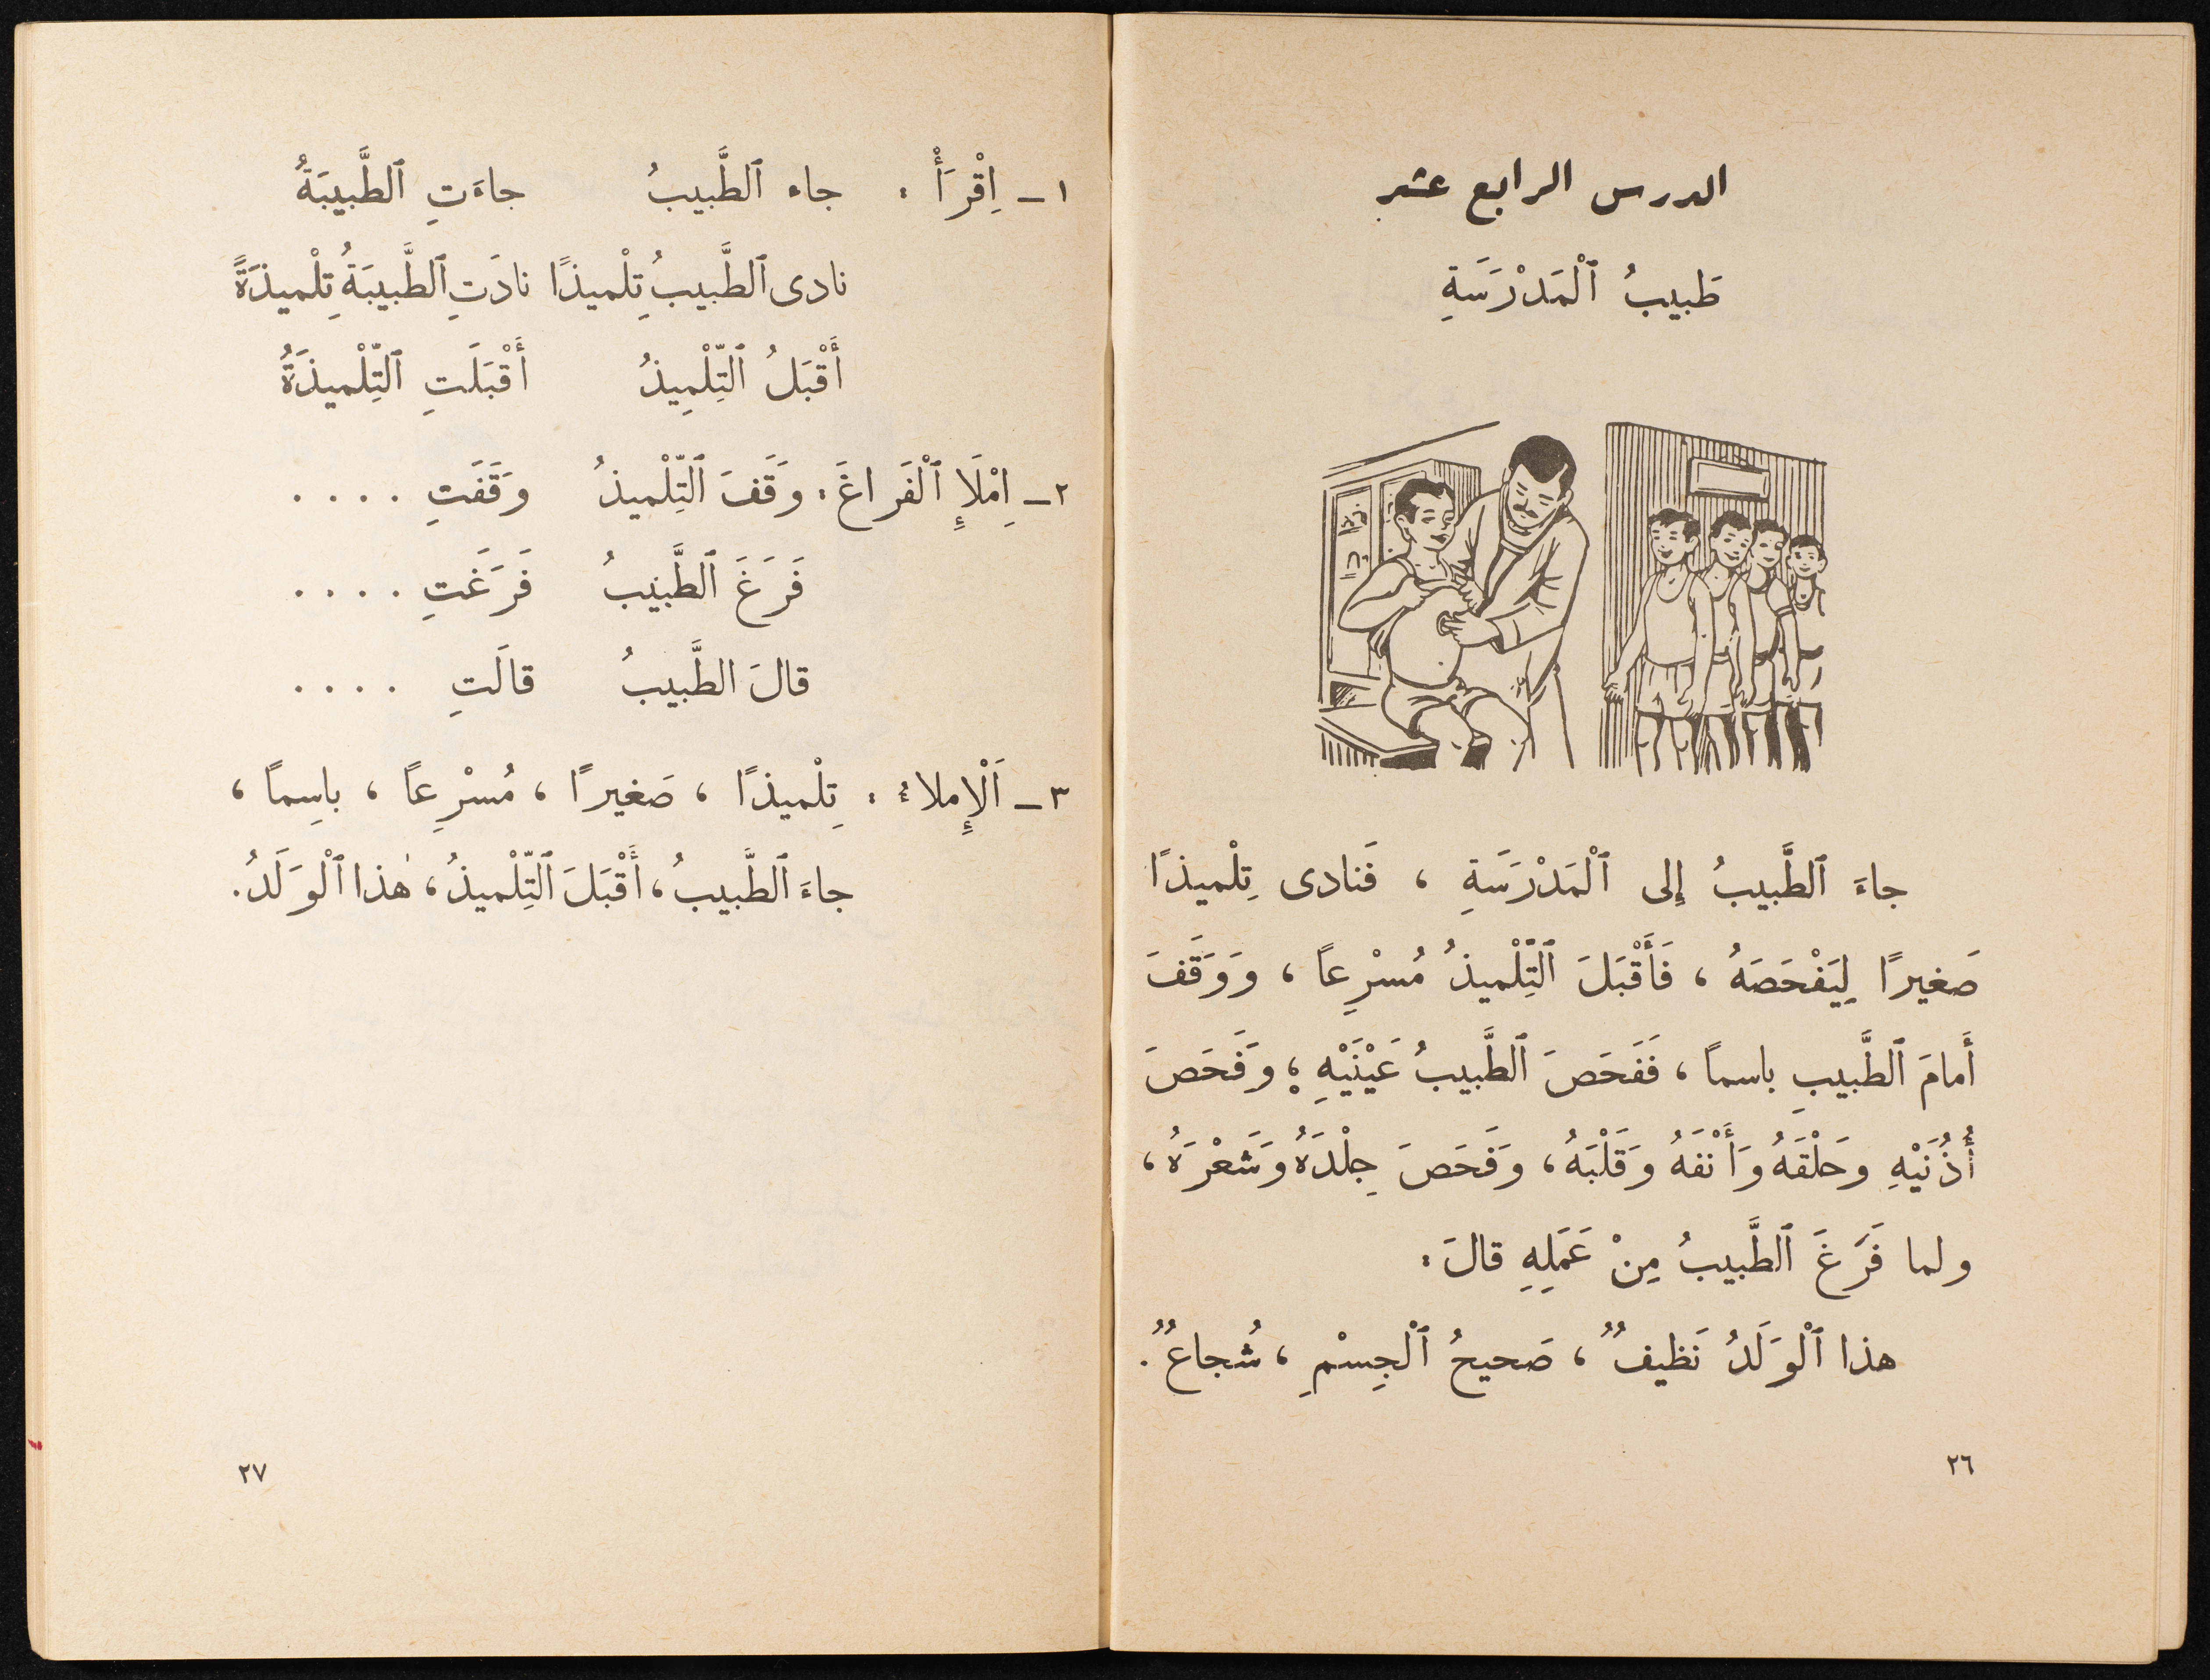 الدرس الرابع عشر
طَبيبُ ٱلْمَدْرَسَةِ
جاءَ ٱلطَّبيبُ إلى ٱلْمَدْرَسَةِ ، فَنادى تِلْميذًا
صَغيرًا لِيَفْحَصَهُ ، فَأَقْبَلَ ٱلتِّلْميذُ مُسْرِعًا ، وَوَقَفَ
أَمامَ ٱلطَّبيبِ باسمًا ، فَفَحَصَ ٱلطَّبيبُ عَيْنَيْهِ ؛ وَفَحَصَ
أُذُنَيْهِ وحَلْقَهُ وَأَنْفَهُ وَقَلْبَهُ ، وَفَحَصَ جِلْدَهُ وَشَعْرَهُ ،
ولما فَرَغَ ٱلطَّبيبُ مِنْ عَمَلِهِ قالَ :
هذا ٱلْوَلَدُ نَظيفٌ ، صَحيحُ ٱلْجِسْمِ ، شُجاعٌ .
٢٦
١ – اِقْرَأْ : جاء ٱلطَّبيبُ جاءَتِ ٱلطَّبيبَةُ
نادى ٱلطَّبيبُ تِلْميذًا نادَتِ ٱلطَّبيبَةُ تِلْميذَةً
أَقْبَلُ ٱلتِّلْمِيذُ أَقْبَلَتِ ٱلتِّلْميذَةُ
٢ – اِمْلَإِ ٱلْفَراغَ : وقَفَ ٱلتِّلْميذُ وقَفَتِ . . . .
فَرَغَ ٱلطَّبيبُ فَرَغَتِ . . . .
قالَ الطَّبيبُ قالَتِ . . . .
٣ – اَلْإِملاءُ : تِلْميذًا ، صَغيرًا ، مُسْرِعًا ، باسِمًا ،
جاءَ ٱلطَّبيبُ ، أَقْبَلَ ٱلتِّلْميذُ ، هٰذا ٱلْوَلَدُ .
٢٧